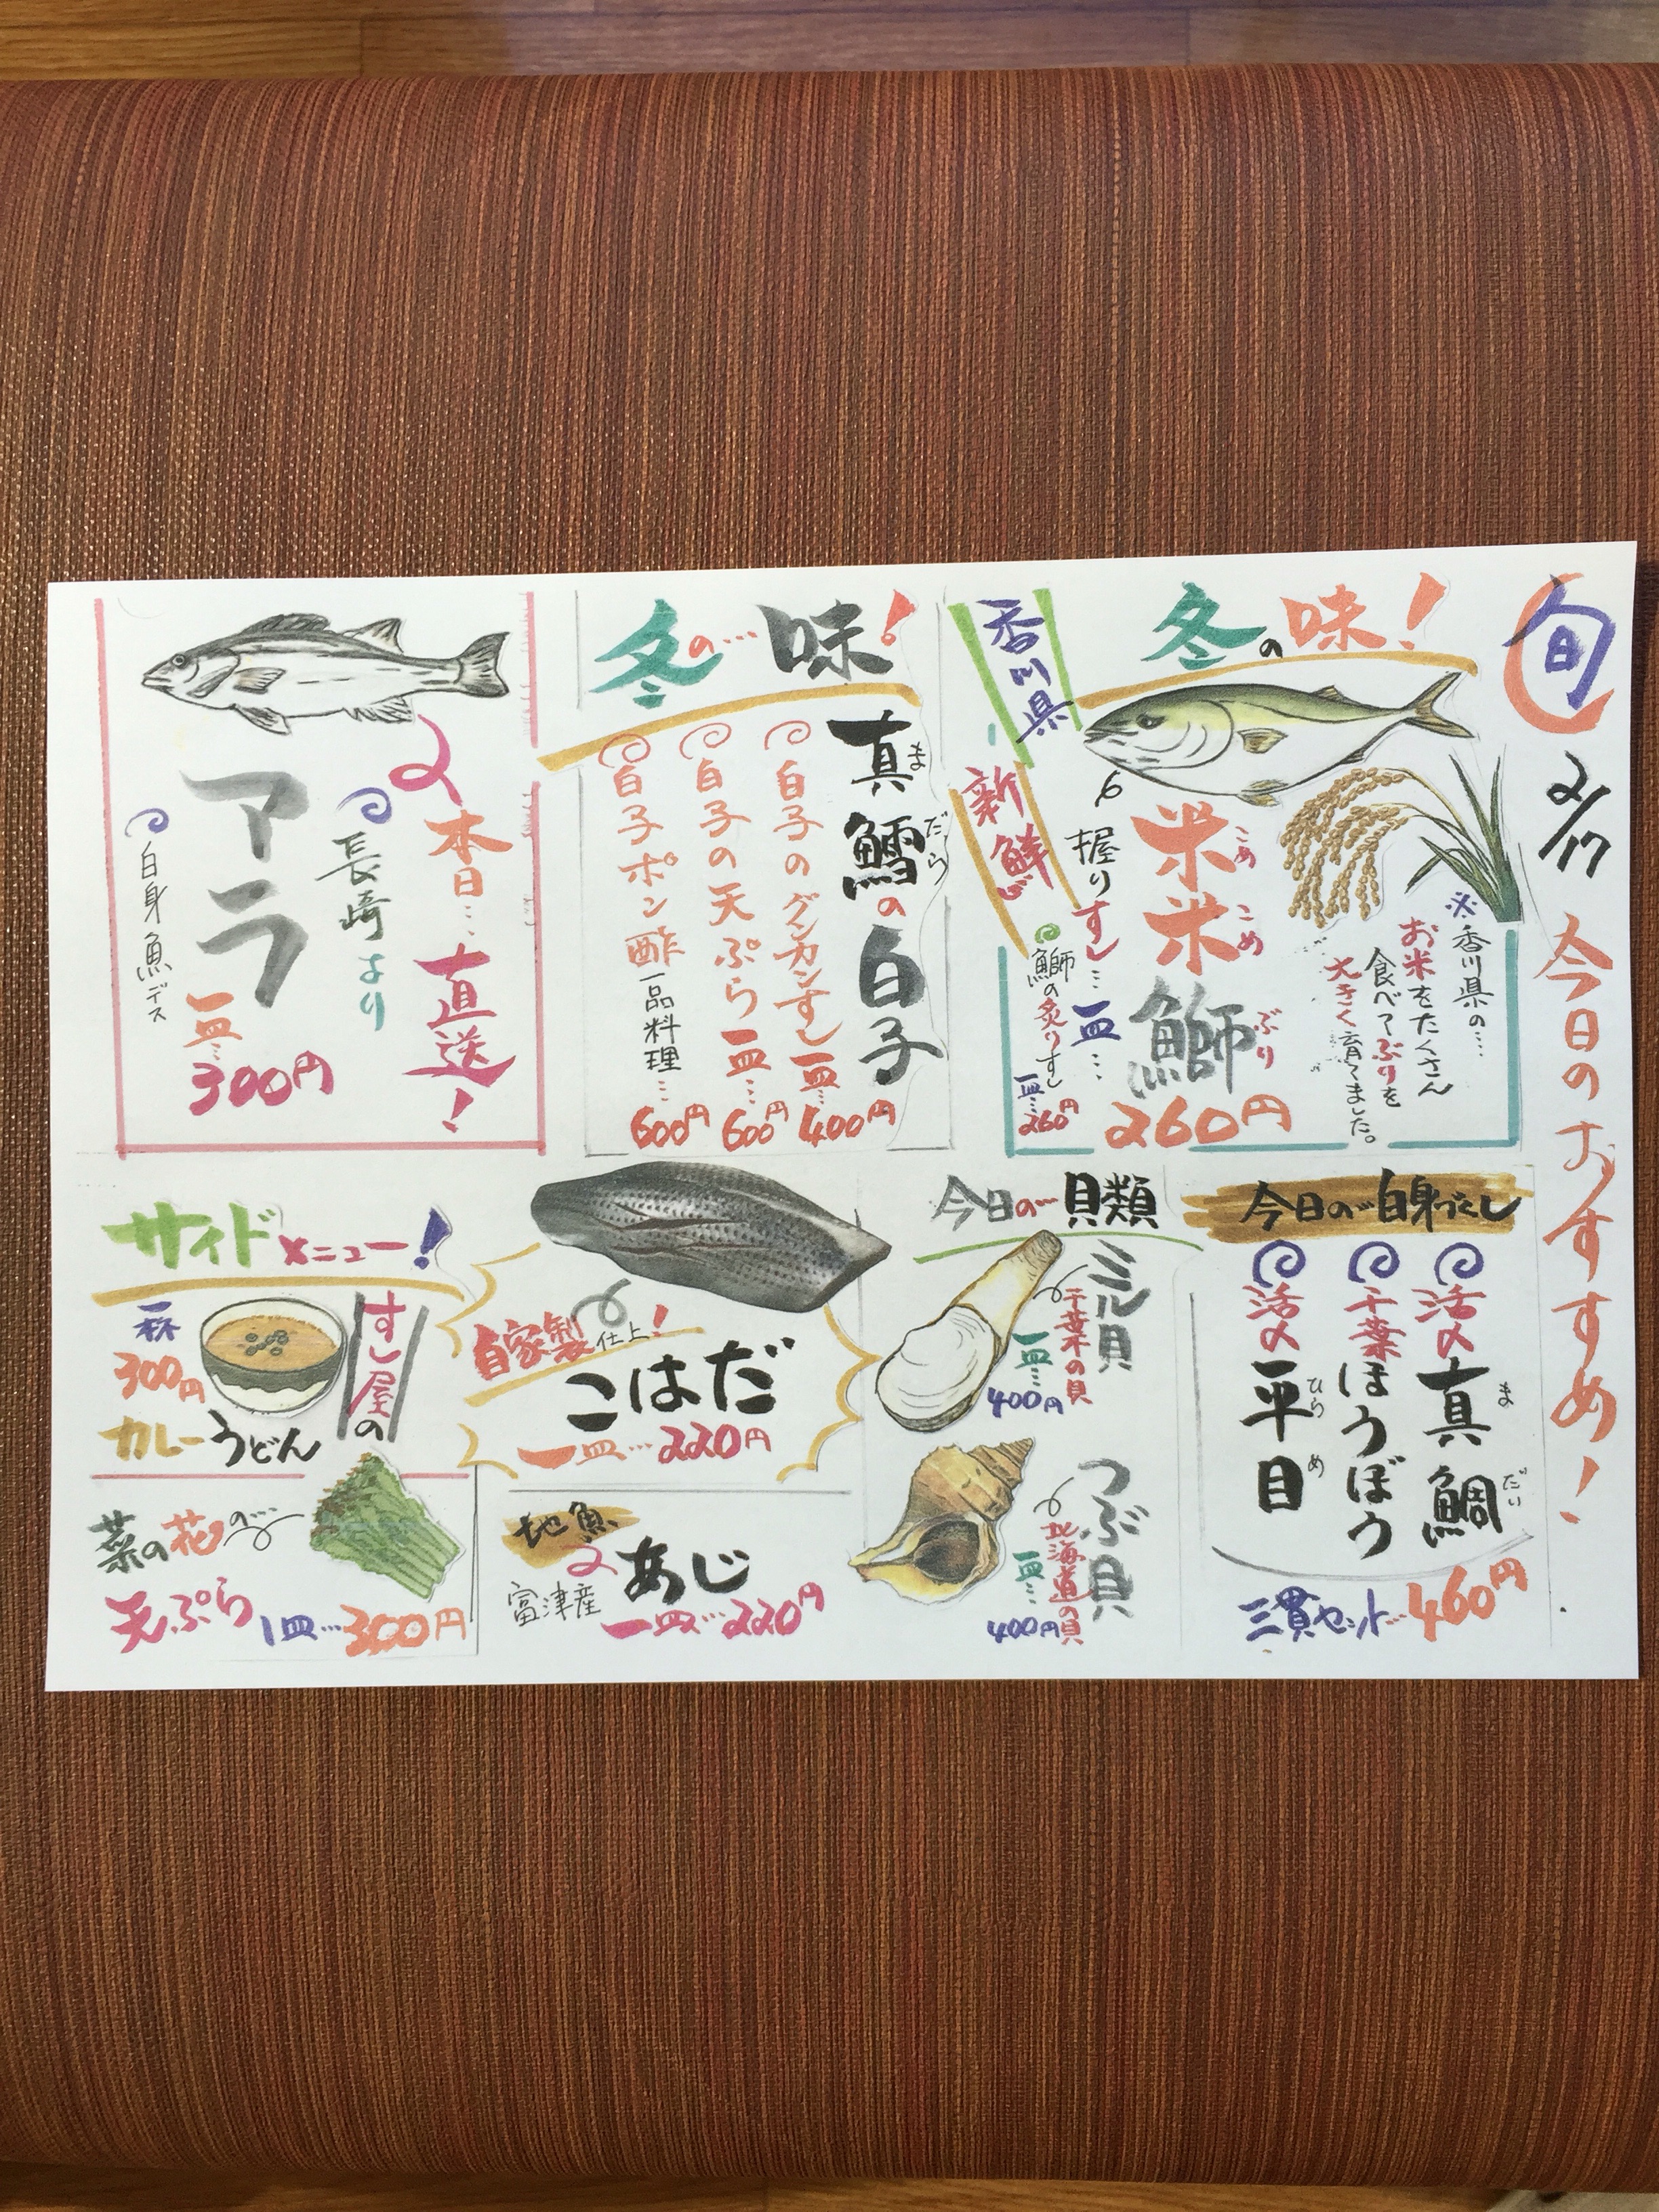 旬
2/17
今日のおすすめ!
冬の味!
香川県
新鮮
米米鰤
こめ
こめ
ぶり
握りすし…一皿…
260円
鰤の炙りすし
一皿…260円
※香川県の…
お米をたくさん
食べてぶりを
大きく育てました。
冬の…味!
真鱈の白子
ま
だら
白子のグンカンすし一皿…400円
白子の天ぷら一皿…600円
白子ポン酢一品料理…600円
本日…直送!
長崎より
アラ
白身魚デス
一皿…300円
今日の…白身づくし
活〆真鯛
ま
だい
千葉ほうぼう
活〆平目
ひら
め
三貫セット…460円
今日の…貝類
ミル貝
千葉の貝
一皿…
400円
つぶ貝
北海道の貝
一皿…
400円
自家製仕上!
こはだ
一皿…220円
地魚
あじ
富津産
一皿…220円
サイドメニュー!
すし屋の
カレーうどん
一杯
300円
菜の花の…
天ぷら1皿…300円